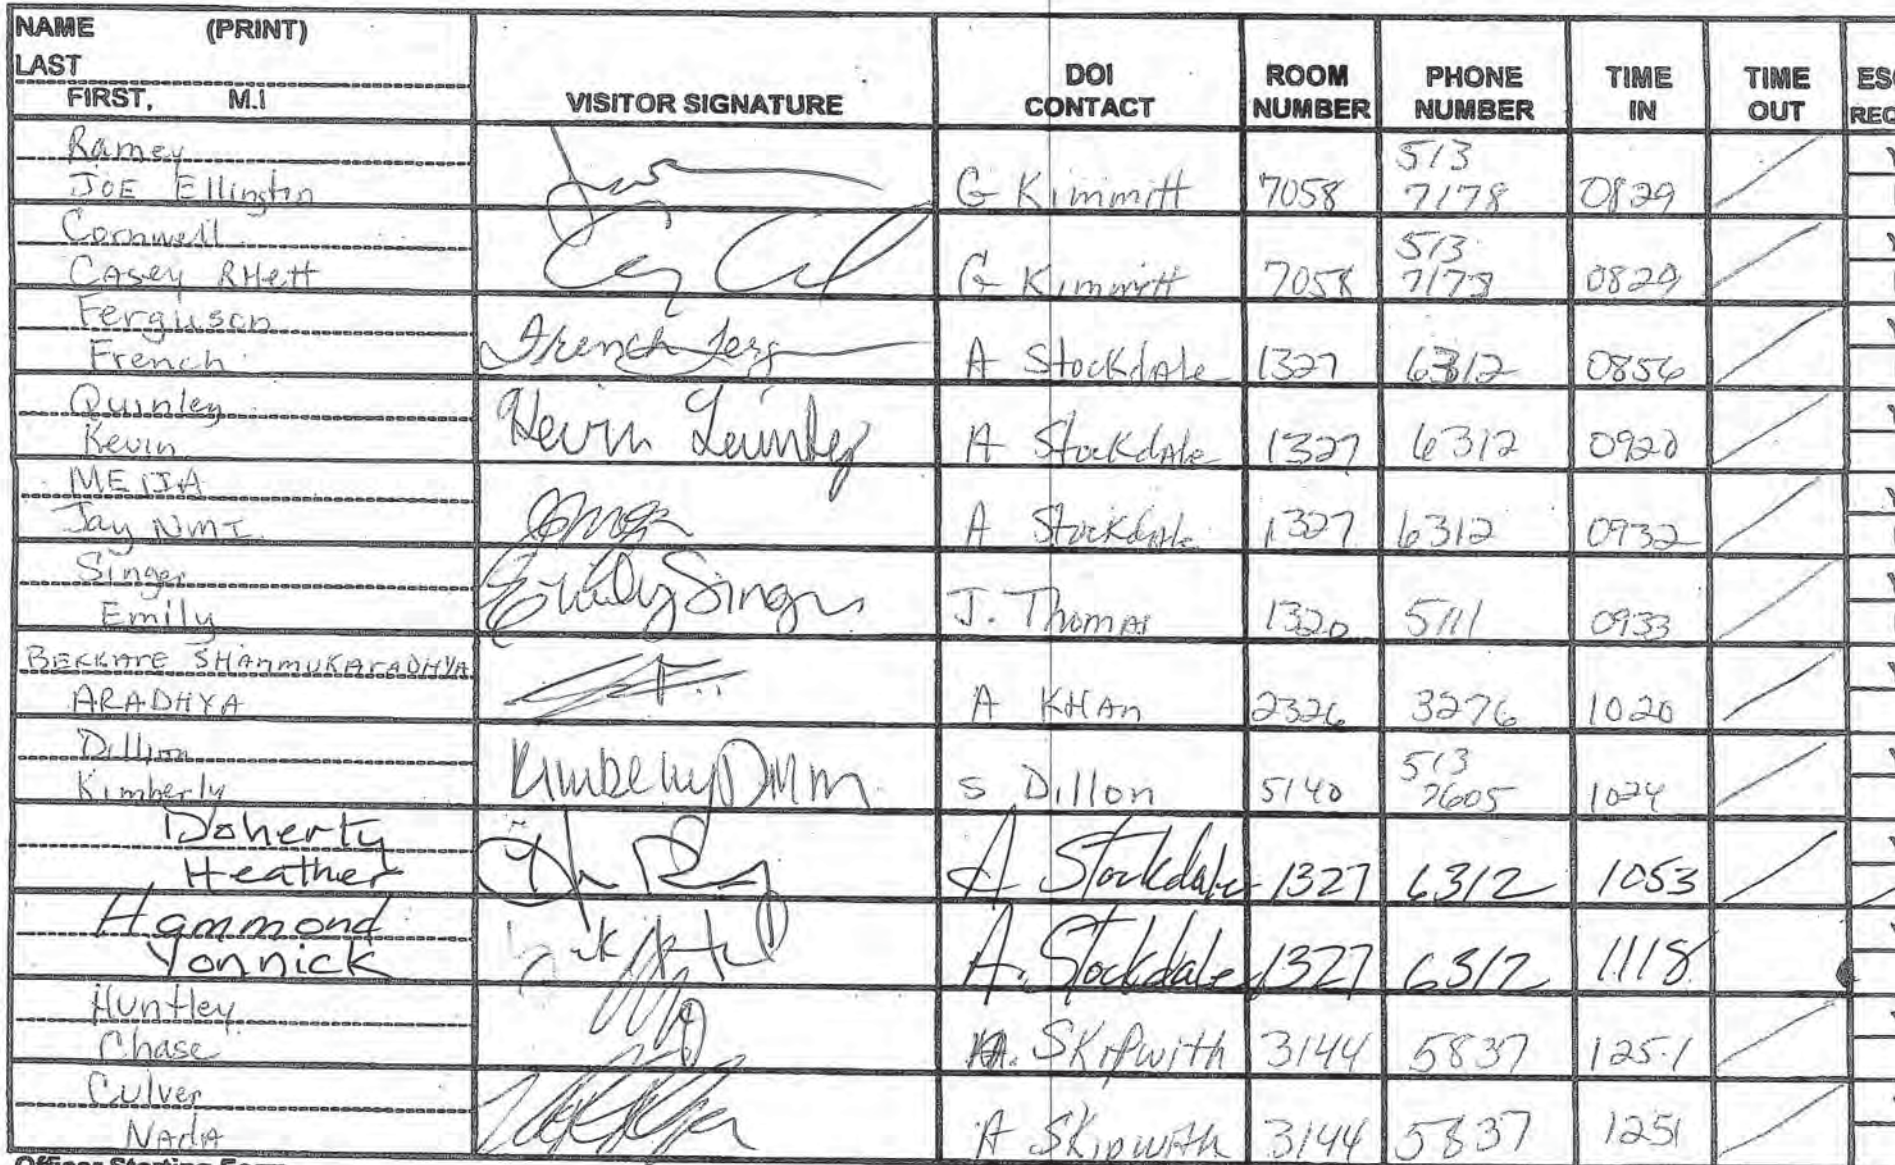 NAME (PRINT)
LAST
FIRST, M.I
VISITOR SIGNATURE
DOI CONTACT
ROOM NUMBER
PHONE NUMBER
TIME IN
TIME OUT
Ramey
JOE Ellington
G Kimmitt 7058 513 7178 0829
Cornwell
Casey RHett
G Kimmitt 7058 513 7178 0829
Ferguson
French
French Ferg
A Stockdale 1327 6312 0856
Quinley
Kevin
Kevin Quinley
A Stockdale 1327 6312 0920
MEJIA
Jay NMI
A Stockdale 1327 6312 0932
Singer
Emily
Emily Singer
J. Thomas 1320 5111 0933
SHANMUKARADHYA
ARADHYA
A KHAn 2326 3276 1020
Dillon
Kimberly
Kimberly Dillon
S Dillon 5140 513 7605 1024
Doherty
Heather
A Stockdale 1327 6312 1053
Hammond
Yonnick
A. Stockdale 1327 6312 1118
Huntley
Chase
A. SKipwith 3144 5837 1251
Culver
NAdA
A SKipwith 3144 5837 1251